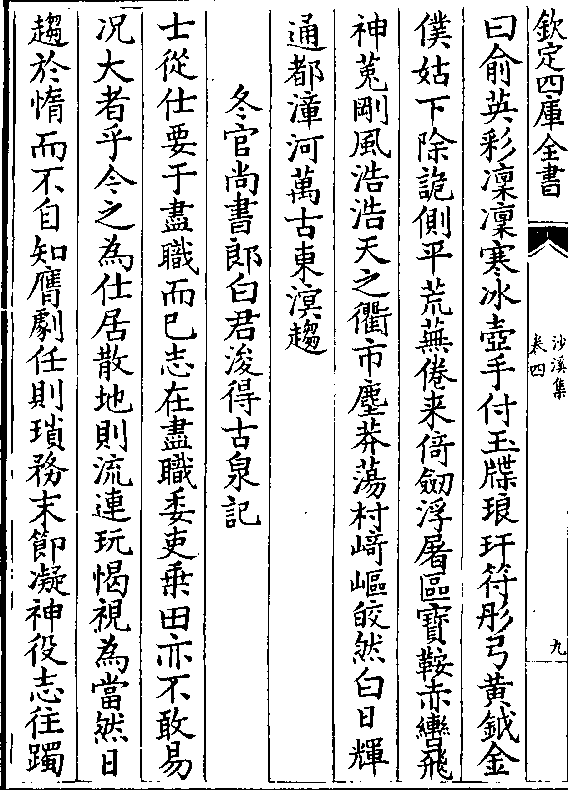 欽定四庫全書
沙溪集
卷四
九
曰俞英彩凜凜寒冰壺手付玉牒琅玕符彤弓黃鉞金
僕姑下除詭側平荒蕪倦来倚劒浮屠區寶鞍赤轡飛
神菟剛風浩浩天之衢市塵莽蕩村﨑嶇皎然白日輝
通都漳河萬古東溟趨
冬官尚書郎白君浚得古泉記
士從仕要于盡職而已志在盡職委吏乗田亦不敢易
况大者乎今之為仕居散地則流連玩愒視為當然日
趨於惰而不自知膺劇任則瑣務末節凝神役志往躅